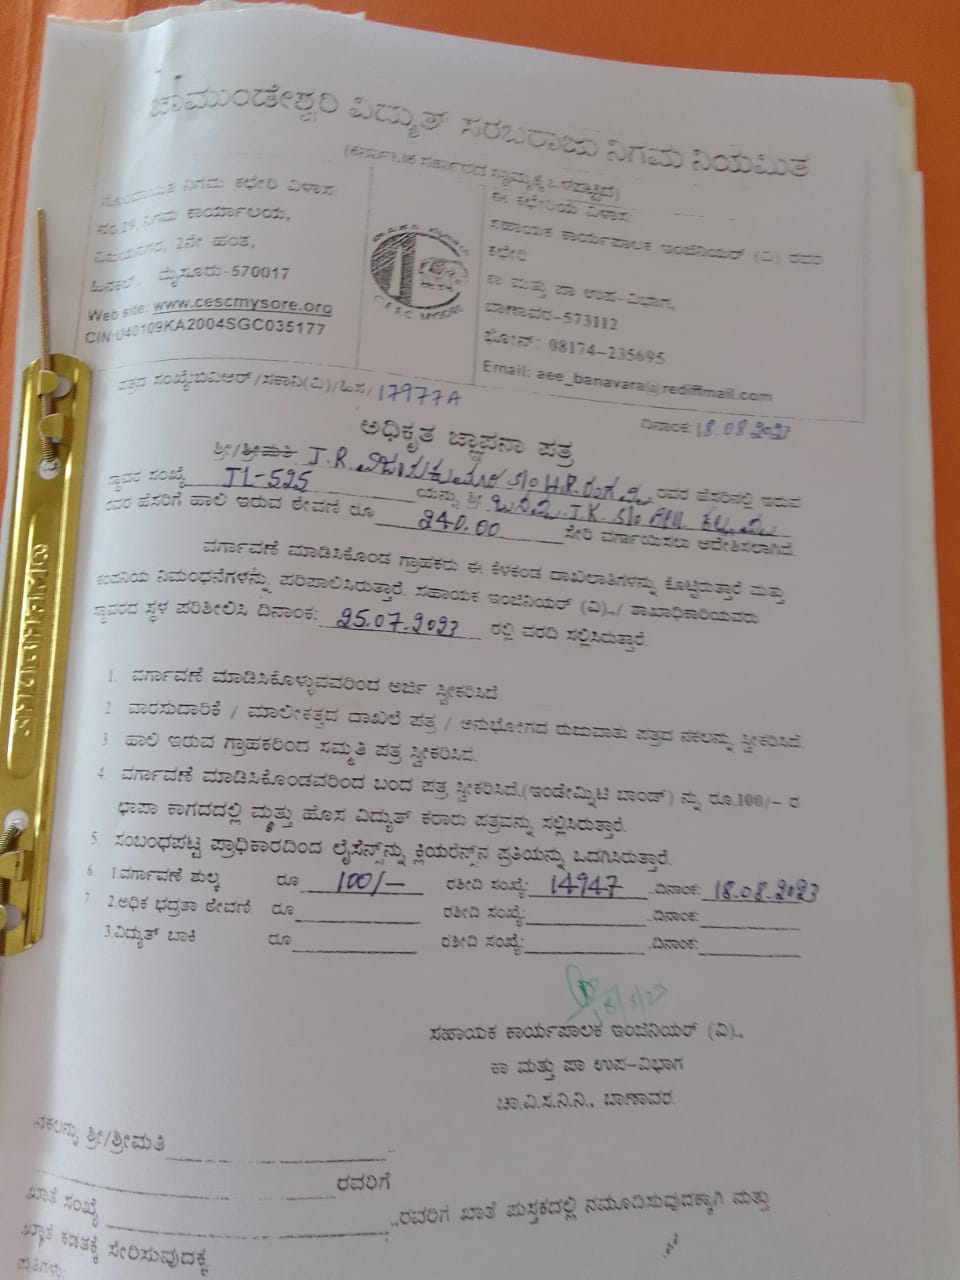 ಚಾಮುಂಡೇಶ್ವರಿ ವಿದ್ಯುತ್ ಸರಬರಾಜು ನಿಗಮ ನಿಯಮಿತ
(ಕರ್ನಾಟಕ ಸರ್ಕಾರದ ಸ್ವಾಮ್ಯಕ್ಕೆ ಒಳಪಟ್ಟಿದೆ)
ನೋಂದಾಯಿತ ನಿಗಮ ಕಛೇರಿ ವಿಳಾಸ:
ನಂ.29, ನಿಗಮ ಕಾರ್ಯಾಲಯ,
ವಿಜಯನಗರ, 2ನೇ ಹಂತ,
ಹಿನಕಲ್, ಮೈಸೂರು-570017
Web site: www.cescmysore.org
CIN:U40109KA2004SGC035177
CESC MYSORE
ಈ ಕಛೇರಿಯ ವಿಳಾಸ:
ಸಹಾಯಕ ಕಾರ್ಯಪಾಲಕ ಇಂಜಿನಿಯರ್ (ವಿ) ರವರ
ಕಛೇರಿ
ಕಾ ಮತ್ತು ಪಾ ಉಪ-ವಿಭಾಗ,
ಬಾಣಾವರ-573112
ಫೋನ್: 08174-235695
Email: aee_banavara@rediffmail.com
ಪತ್ರದ ಸಂಖ್ಯೆ:ಬಿವಿಆರ್/ಸಕಾನಿ(ವಿ)/ಹಿಸ/ 17977A
ದಿನಾಂಕ: 18.08.2023
ಅಧಿಕೃತ ಜ್ಞಾಪನಾ ಪತ್ರ
ಶ್ರೀ/ಶ್ರೀಮತಿ J.R. s/o H.R. ರವರ ಹೆಸರಿನಲ್ಲಿ ಇರುವ
ಸ್ಥಾವರ ಸಂಖ್ಯೆ JL-525 ಯನ್ನು ಶ್ರೀ J.K. s/o
ರವರ ಹೆಸರಿಗೆ ಹಾಲಿ ಇರುವ ಠೇವಣಿ ರೂ 240.00 ಸೇರಿ ವರ್ಗಾಯಿಸಲು ಆದೇಶಿಸಲಾಗಿದೆ.
ವರ್ಗಾವಣೆ ಮಾಡಿಸಿಕೊಂಡ ಗ್ರಾಹಕರು ಈ ಕೆಳಕಂಡ ದಾಖಲಾತಿಗಳನ್ನು ಕೊಟ್ಟಿರುತ್ತಾರೆ ಮತ್ತು
ಕಂಪನಿಯ ನಿಬಂಧನೆಗಳನ್ನು ಪರಿಪಾಲಿಸಿರುತ್ತಾರೆ. ಸಹಾಯಕ ಇಂಜಿನಿಯರ್ (ವಿ),/ ಶಾಖಾಧಿಕಾರಿಯವರು
ಸ್ಥಾವರದ ಸ್ಥಳ ಪರಿಶೀಲಿಸಿ ದಿನಾಂಕ: 25.07.2023 ರಲ್ಲಿ ವರದಿ ಸಲ್ಲಿಸಿರುತ್ತಾರೆ.
1. ವರ್ಗಾವಣೆ ಮಾಡಿಸಿಕೊಳ್ಳುವವರಿಂದ ಅರ್ಜಿ ಸ್ವೀಕರಿಸಿದೆ.
2. ವಾರಸುದಾರಿಕೆ / ಮಾಲೀಕತ್ವದ ದಾಖಲೆ ಪತ್ರ / ಅನುಭೋಗದ ರುಜುವಾತು ಪತ್ರದ ನಕಲನ್ನು ಸ್ವೀಕರಿಸಿದೆ.
3. ಹಾಲಿ ಇರುವ ಗ್ರಾಹಕರಿಂದ ಸಮ್ಮತಿ ಪತ್ರ ಸ್ವೀಕರಿಸಿದೆ.
4. ವರ್ಗಾವಣೆ ಮಾಡಿಸಿಕೊಂಡವರಿಂದ ಬಂದ ಪತ್ರ ಸ್ವೀಕರಿಸಿದೆ.(ಇಂಡೇಮ್ನಿಟಿ ಬಾಂಡ್) ನ್ನು ರೂ.100/- ರ
ಛಾಪಾ ಕಾಗದದಲ್ಲಿ ಮತ್ತು ಹೊಸ ವಿದ್ಯುತ್ ಕರಾರು ಪತ್ರವನ್ನು ಸಲ್ಲಿಸಿರುತ್ತಾರೆ.
5. ಸಂಬಂಧಪಟ್ಟ ಪ್ರಾಧಿಕಾರದಿಂದ ಲೈಸೆನ್ಸ್‌ನ್ನು ಕ್ಲಿಯರೆನ್ಸ್‌ನ ಪ್ರತಿಯನ್ನು ಒದಗಿಸಿರುತ್ತಾರೆ.
6. 1.ವರ್ಗಾವಣೆ ಶುಲ್ಕ ರೂ 100/- ರಶೀದಿ ಸಂಖ್ಯೆ: 14947 ದಿನಾಂಕ: 18.08.2023
7 2.ಅಧಿಕ ಭದ್ರತಾ ಠೇವಣಿ ರೂ ರಶೀದಿ ಸಂಖ್ಯೆ: ದಿನಾಂಕ:
3.ವಿದ್ಯುತ್ ಬಾಕಿ ರೂ ರಶೀದಿ ಸಂಖ್ಯೆ: ದಿನಾಂಕ:
ಸಹಾಯಕ ಕಾರ್ಯಪಾಲಕ ಇಂಜಿನಿಯರ್ (ವಿ).,
ಕಾ ಮತ್ತು ಪಾ ಉಪ-ವಿಭಾಗ
ಚಾ.ವಿ.ಸ.ನಿ.ನಿ., ಬಾಣಾವರ.
ನಕಲನ್ನು ಶ್ರೀ/ಶ್ರೀಮತಿ
ರವರಿಗೆ
ಖಾತೆ ಸಂಖ್ಯೆ ರವರಿಗೆ ಖಾತೆ ಪುಸ್ತಕದಲ್ಲಿ ನಮೂದಿಸುವುದಕ್ಕಾಗಿ ಮತ್ತು
ಖಾತೆ ಕಡತಕ್ಕೆ ಸೇರಿಸುವುದಕ್ಕೆ
ಪ್ರತಿಗಳು: